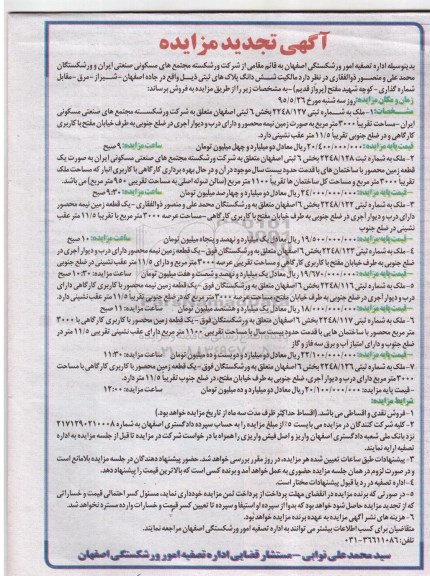 آگهی تجدید مزایده
بدینوسیله اداره تصفیه امور ورشکستگی اصفهان به قائم مقامی از شرکت ورشکسته مجتمع های مسکونی صنعتی ایران و ورشکستگان
محمد علی و منصور ذوالفقاری در نظر دارد مالکیت شش دانگ پلاک های ثبتی ذیل واقع در جاده اصفهان -شیراز -مرق -مقابل
شماره گذاری -کوچه شهید مفتح (پرواز قدیم) -به مشخصات زیر را از طریق مزایده به فروش برساند:
زمان و مکان مزایده: روز سه شنبه مورخ ۹۵/۵/۲۶
مشخصات: ۱- ملک به شماره ثبتی ۲۲۴۸/۱۲۷ بخش ۶ ثبتی اصفهان متعلق به شرکت ورشکسته مجتمع های صنعتی مسکونی
ایران -مساحت تقریبا ۳۰۰۰ متر مربع به صورت زمین نیمه محصور و دارای درب و دیوار آجری در ضلع جنوبی به طرف خیابان مفتح با کاربری
کارگاهی و در ضلع جنوبی تقریبا ۱۱/۵ متر عقب نشینی دارد.
قیمت پایه مزایده: ۲۰/۴۰۰/۰۰۰/۰۰۰ ریال معادل دو میلیارد و چهل میلیون تومان ساعت مزایده: ۹ صبح
۲- ملک به شماره ثبتی ۲۲۴۸/۱۲۸ بخش ۶ ثبتی اصفهان متعلق به شرکت ورشکسته مجتمع های صنعتی مسکونی ایران به صورت یک
قطعه زمین محصور با ساختمان های با قدمت حدود بیست سال موجود در آن و در حال بهره برداری کارگاهی با کاربری انبار که مساحت ملک
تقریبا ۳۰۰۰ متر مربع و مساحت کل ساختمان ها تقریبا ۱۱۰۰ متر مربع (سالن تسوله اصلی به مساحت تقریبی ۹۵۰ متر مربع) می باشد.
قیمت پایه مزایده: ۲۴/۰۰۰/۰۰۰/۰۰۰ ریال معادل دو میلیارد و چهارصد میلیون تومان ساعت مزایده: ۹:۳۰ صبح
۳- ملک به شماره ثبتی ۲۲۴۸/۱۲۳ بخش ۶ اصفهان متعلق به ورشکستگان محمد علی و منصور ذوالفقاری -یک قطعه زمین نیمه محصور
دارای درب و دیوار آجری در ضلع جنوبی به طرف خیابان مفتح با کاربری کارگاهی -مساحت عرصه ۳۰۰۰ متر مربع با تقریبا ۱۱/۵ متر عقب
نشینی در ضلع جنوب
قیمت پایه مزایده: ۱۹/۵۰۰/۰۰۰/۰۰۰ ریال معادل یک میلیارد و نهصد و پنجاه میلیون تومان ساعت مزایده: ۱۰ صبح
۴- ملک به شماره ثبتی ۲۲۴۸/۱۲۲ بخش ۶ اصفهان متعلق به ورشکستگان فوق -یک قطعه زمین نیمه محصور دارای درب و دیوار آجری در
ضلع جنوبی به طرف خیابان مفتح با کاربری کارگاهی و مساحت تقریبی عرصه ۳۰۰۰ متر مربع و دارای ۱۱/۵ متر عقب نشینی در ضلع جنوبی
قیمت پایه مزایده: ۱۹/۶۷۰/۰۰۰/۰۰۰ ریال معادل یک میلیارد و نهصد و شصت و هفت میلیون تومان ساعت مزایده: ۱۰:۳۰ صبح
۵- ملک به شماره ثبتی ۲۲۴۸/۱۱۶ بخش ۶ اصفهان متعلق به ورشکستگان فوق -یک قطعه زمین نیمه محصور با کاربری کارگاهی دارای
درب و دیوار آجری در ضلع جنوبی به طرف خیابان مفتح، مساحت عرصه ۳۰۰۰ متر مربع که دارای ضلع جنوبی تقریبی ۱۱/۵ متر عقب نشینی دارد.
قیمت پایه مزایده: ۱۸/۰۰۰/۰۰۰/۰۰۰ ریال معادل یک میلیارد و هشتصد میلیون تومان ساعت مزایده: ۱۱ صبح
۶- ملک به شماره ثبتی ۲۲۴۸/۱۱۷ بخش ۶ اصفهان متعلق به ورشکستگان فوق -یک قطعه زمین محصور با کاربری کارگاهی با ۳۰۰۰
متر مربع محصور با ساختمان هایی با قدمت حدود بیست سال با مساحت تقریبی ۱۱۰۰ متر مربع دارای عقب نشینی تقریبی ۱۱/۵ متر در
ضلع جنوب و دارای امتیاز آب و برق سه فاز و گاز
قیمت پایه مزایده: ۲۲/۱۰۰/۰۰۰/۰۰۰ ریال معادل دو میلیارد و دویست و ده میلیون تومان ساعت مزایده: ۱۱:۳۰
۷- ملک به شماره ثبتی ۲۲۴۸/۱۲۶ بخش ۶ اصفهان متعلق به ورشکستگان فوق -یک قطعه زمین محصور با کاربری کارگاهی با مساحت
۳۰۰۰ متر مربع دارای درب و دیوار آجری، ضلع جنوبی به طرف خیابان مفتح، در ضلع جنوب تقریبا ۱۱/۵ متر دارد.
- قیمت پایه مزایده: ۲۰/۱۰۰/۰۰۰/۰۰۰ ریال معادل دو میلیارد و ده میلیون تومان ساعت مزایده: ۱۲:۰۰
شرایط مزایده:
۱- فروش نقدی و اقساطی می باشد. (اقساط حداکثر ظرف مدت سه ماه از تاریخ مزایده خواهد بود.)
۲- کلیه شرکت کنندگان در مزایده می بایست ۵٪ از مبلغ مزایده را به حساب سپرده دادگستری اصفهان به شماره ۲۱۷۱۲۹۰۲۱۰۰۰۸
نزد بانک ملی شعبه دادگستری اصفهان واریز و اصل فیش واریزی را همراه با درخواست شرکت در مزایده تا قبل از جلسه مزایده به اداره
تصفیه ارایه نمایند.
۳- پیشنهادات طبق ساعات تعیین شده هر مزایده، در روز مقرر بررسی خواهد شد. حضور پیشنهاد دهندگان در جلسه مزایده بلامانع است
و در صورت لزوم در همان جلسه مزایده حضوری به عمل خواهد آمد و برنده کسی است که بالاترین قیمت را پیشنهاد دهد.
۴- اداره تصفیه در رد یا قبول پیشنهادات مختار است.
۵- در صورتی که برنده مزایده در انقضای مهلت پرداخت از پرداخت ثمن مزایده خودداری نماید، مسئول کسر احتمالی قیمت و خساراتی
که از تجدید مزایده حاصل شود خواهد بود که بدوا از سپرده او استیفا و سپرده تا تعیین کسر قیمت و خسارات وارده مسترد نخواهد شد.
۶- هزینه های نشر آگهی مزایده به عهده برنده مزایده خواهد بود.
متقاضیان برای کسب اطلاعات بیشتر می توانند به اداره تصفیه امور ورشکستگی اصفهان مراجعه نمایند.
تلفن: ۰۳۱-۳۶۶۱۱۰۸۶
سید محمد علی نوابی - مستشار قضایی اداره تصفیه امور ورشکستگی اصفهان